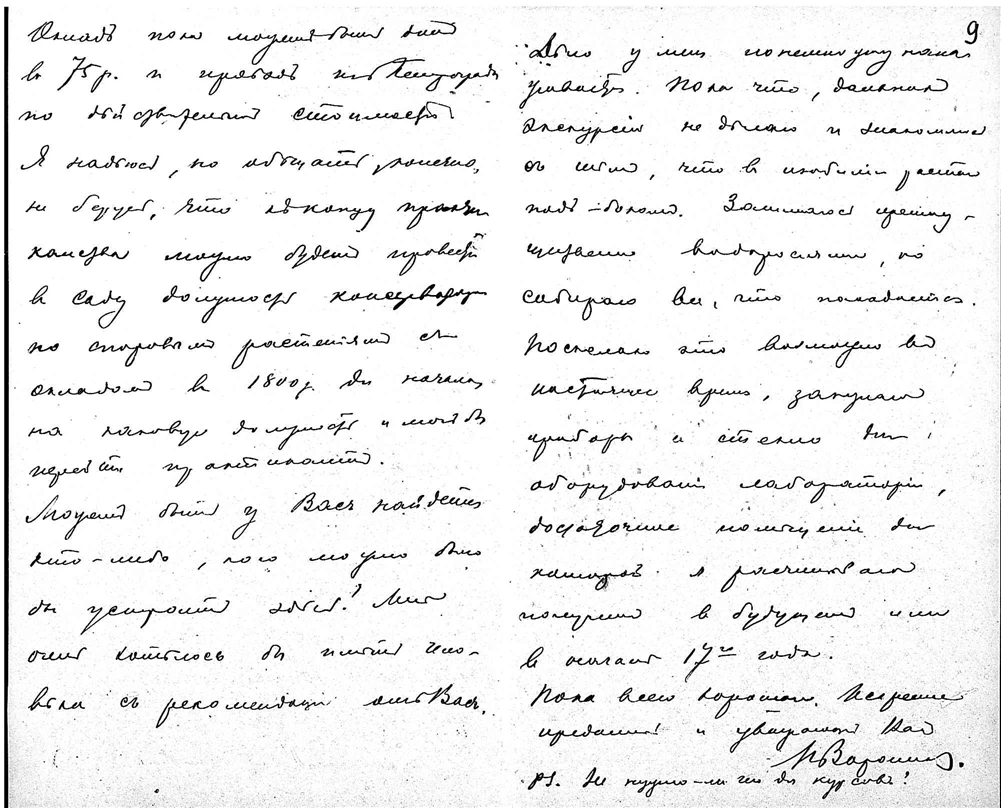 Окладъ пока можетъ быть данъ
въ 75 р. и проѣздъ изъ Петрограда
по дѣйствительной стоимости.
Я надѣюсь, но обѣщать, конечно,
не берусь, что къ концу
можно будетъ провести
въ саду должность консерватора
по споровымъ растеніямъ съ
окладомъ въ 1800 р. для начала,
на каковую должность и могъ бы
перейти практикантъ.
Можетъ быть у Васъ найдется
кто-либо, кого можно было
бы устроить здѣсь? Мнѣ
очень хотѣлось бы имѣть чело-
вѣка съ рекомендаціи отъ Васъ.
9
Дѣло у меня понемногу нала
живается. Пока что, дальнихъ
экскурсій не дѣлаю и знакомлюсь
съ тѣмъ, что въ изобиліи растетъ
подъ-бокомъ. Занимаюсь преиму-
щественно водорослями, но
собираю все, что попадается.
Поскольку это возможно въ
настоящее время, закупаю
приборы и стекло для
оборудованія лабораторіи,
достаточное помѣщеніе для
которой я расчитываю
получить въ будущемъ или
въ началѣ 17го года.
Пока всего хорошаго. Искренне
преданный и уважающій Васъ
Н Воронихинъ.
PS. Не нужно-ли чего для курсовъ?